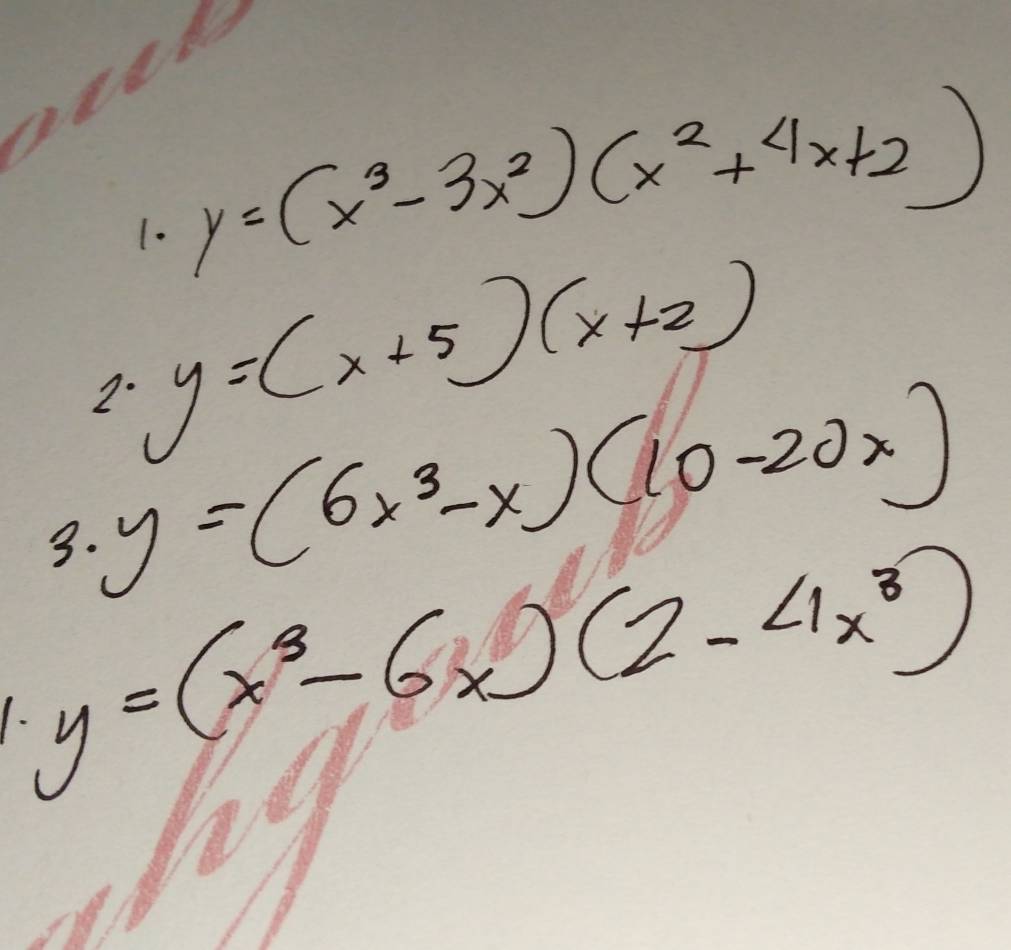 1. y=(x³-3x²)(x²+4x+2)
2. y=(x+5)(x+2)
3. y=(6x³-x)(10-20x)
1. y=(x³-6x)(2-4x³)